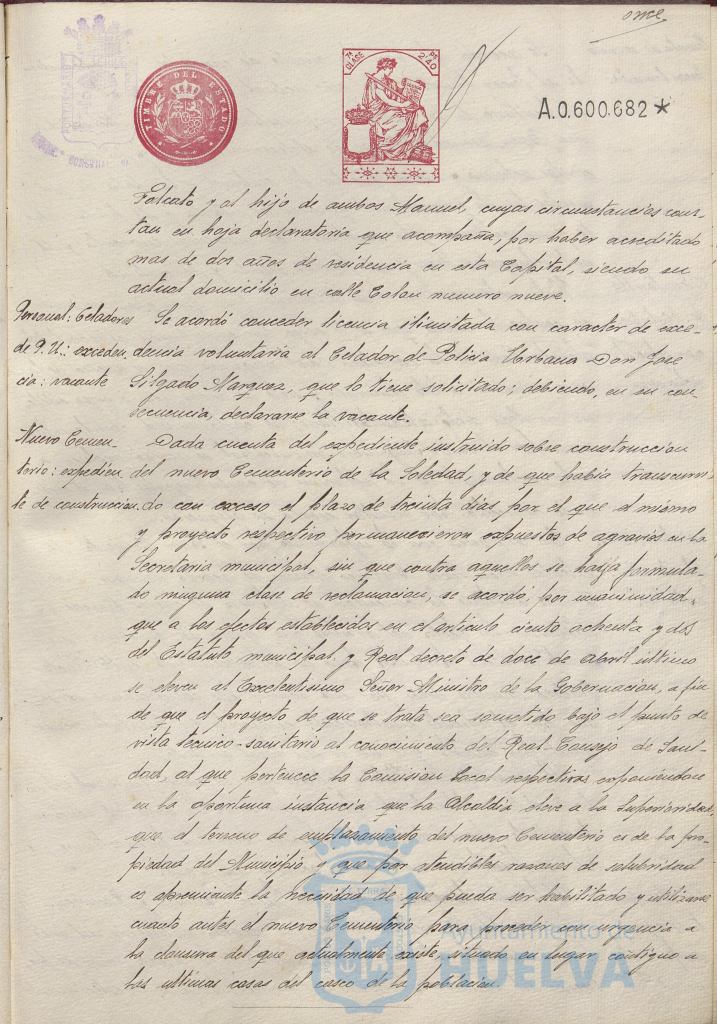 once
TIMBRE DEL ESTADO
7ª CLASE
2'40 PS
A.0.600.682 *
y al hijo de ambos Manuel, cuyas circunstancias cons-
tan en hoja declaratoria que acompaña, por haber acreditado
mas de dos años de residencia en esta Capital, siendo su
actual domicilio en calle Colon numero nueve.
Personal: Celadores
de P. U.: exceden
cia: vacante
Se acordó conceder licencia ilimitada con caracter de exce-
dencia voluntaria al Celador de Policia Urbana Don José
Silgado Marquez, que lo tiene solicitado; debiendo, en su con-
secuencia, declararse la vacante.
Nuevo Cemen-
terio: expedien
te de construccion.
Dada cuenta del expediente instruido sobre construccion
del nuevo Cementerio de la Soledad, y de que habia transcurri-
do con exceso el plazo de treinta dias por el que el mismo
y proyecto respectivo permanecieron expuestos de agravios en la
Secretaria municipal, sin que contra aquellos se haya formula-
do ninguna clase de reclamacion, se acordó, por unanimidad,
que a los efectos establecidos en el articulo ciento ochenta y dos
del Estatuto municipal y Real decreto de doce de abril último
se eleven al Excelentisimo Señor Ministro de la Gobernacion, a fin
de que el proyecto de que se trata sea sometido bajo el punto de
vista tecnico-sanitario al conocimiento del Real Consejo de Sani-
dad, al que pertenece la Comision local respectiva, exponiendose
en la oportuna instancia que la Alcaldia eleve a la Superioridad,
que el terreno de emplazamiento del nuevo Cementerio es de la pro-
piedad del Municipio y que por atendibles razones de salubridad
es apremiante la necesidad de que pueda ser habilitado y utilizarse
cuanto antes el nuevo Cementerio para proceder con urgencia a
la clausura del que actualmente existe situado en lugar contiguo a
las ultimas casas del casco de la poblacion.
Ayuntamiento de
HUELVA